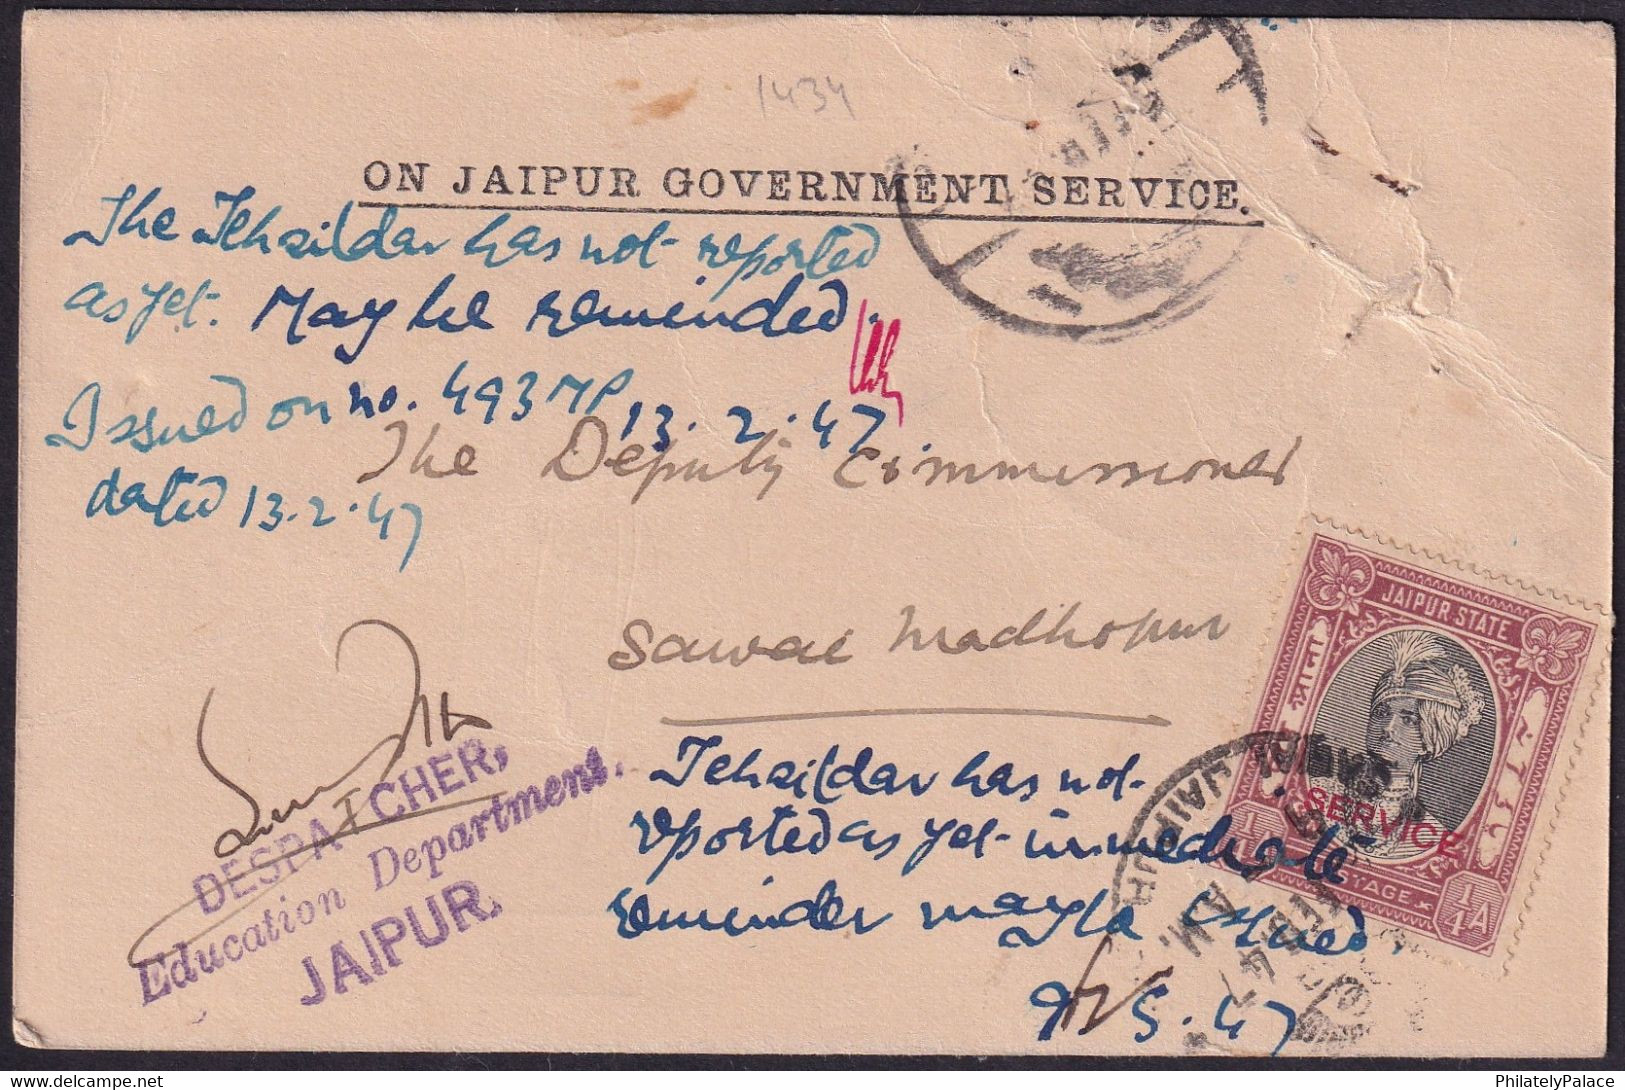 1434
ON JAIPUR GOVERNMENT SERVICE.
The Tehsildar has not reported
as yet. May be reminded.
Issued on no. 493 MP
dated 13.2.47
13.2.47
The Deputy Commissioner
Sawai Madhopur
JAIPUR STATE
पाव आना
SERVICE
1/4 A
POSTAGE
1/4 A
DESPATCHER,
Education Department.
JAIPUR.
Tehsildar has not
reported as yet immediate
reminder may be issued.
5.47
JAIPUR
A.M.
PhilatelyPalace
delcampe.net